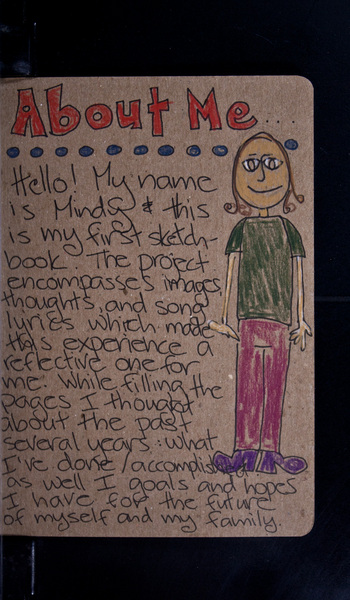 About Me....
Hello! My name
is Mindy & this
is my first sketch-
book. The project
encompasses images,
thoughts, and song
lyrics which made
this experience a
reflective one for
me. While filling the
pages I thought
about the past
several years: what
I've done/accomplished
as well I goals and hopes
I have for the future
of myself and my family.